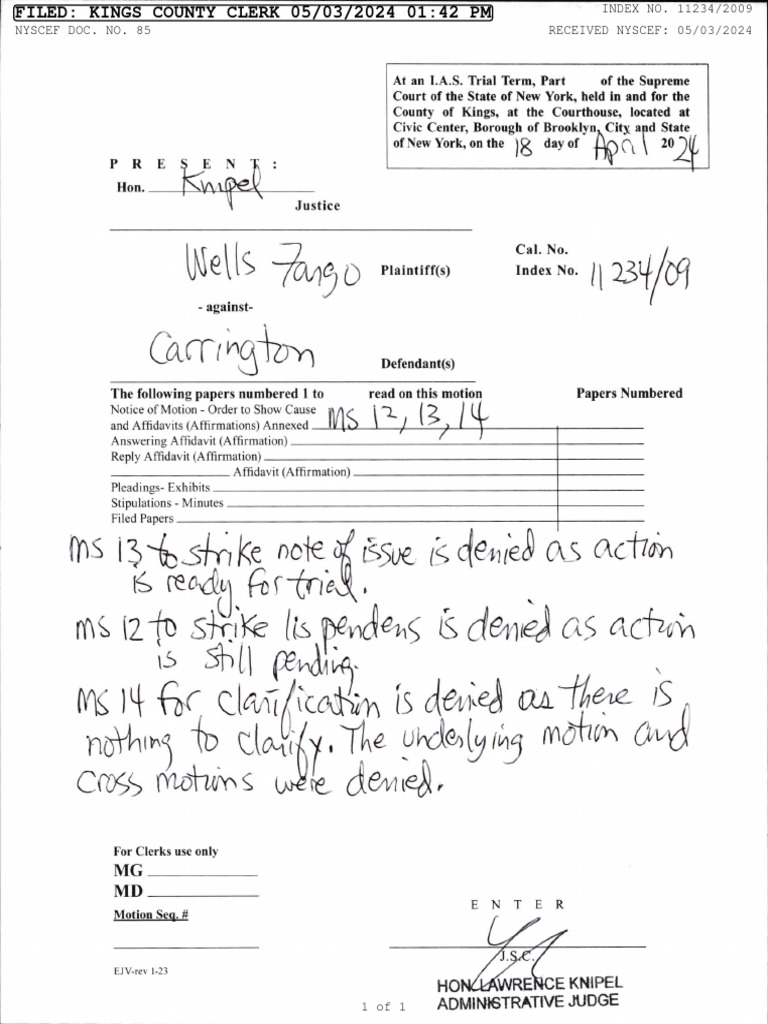 FILED: KINGS COUNTY CLERK 05/03/2024 01:42 PM
INDEX NO. 11234/2009
NYSCEF DOC. NO. 85
RECEIVED NYSCEF: 05/03/2024
At an I.A.S. Trial Term, Part of the Supreme
Court of the State of New York, held in and for the
County of Kings, at the Courthouse, located at
Civic Center, Borough of Brooklyn, City and State
of New York, on the 18 day of April 2024
P R E S E N T :
Hon. Knipel
Justice
Wells Fargo Plaintiff(s)
Cal. No.
Index No. 11234/09
- against-
Carrington Defendant(s)
The following papers numbered 1 to read on this motion Papers Numbered
Notice of Motion - Order to Show Cause
and Affidavits (Affirmations) Annexed MS 12, 13, 14
Answering Affidavit (Affirmation)
Reply Affidavit (Affirmation)
Affidavit (Affirmation)
Pleadings- Exhibits
Stipulations - Minutes
Filed Papers
MS 13 to strike note of issue is denied as action
is ready for trial.
MS 12 to strike lis pendens is denied as action
is still pending.
MS 14 for clarification is denied as there is
nothing to clarify. The underlying motion and
cross motions were denied.
For Clerks use only
MG
MD
Motion Seq. #
E N T E R
J.S.C.
EJV-rev 1-23
HON. LAWRENCE KNIPEL
ADMINISTRATIVE JUDGE
1 of 1